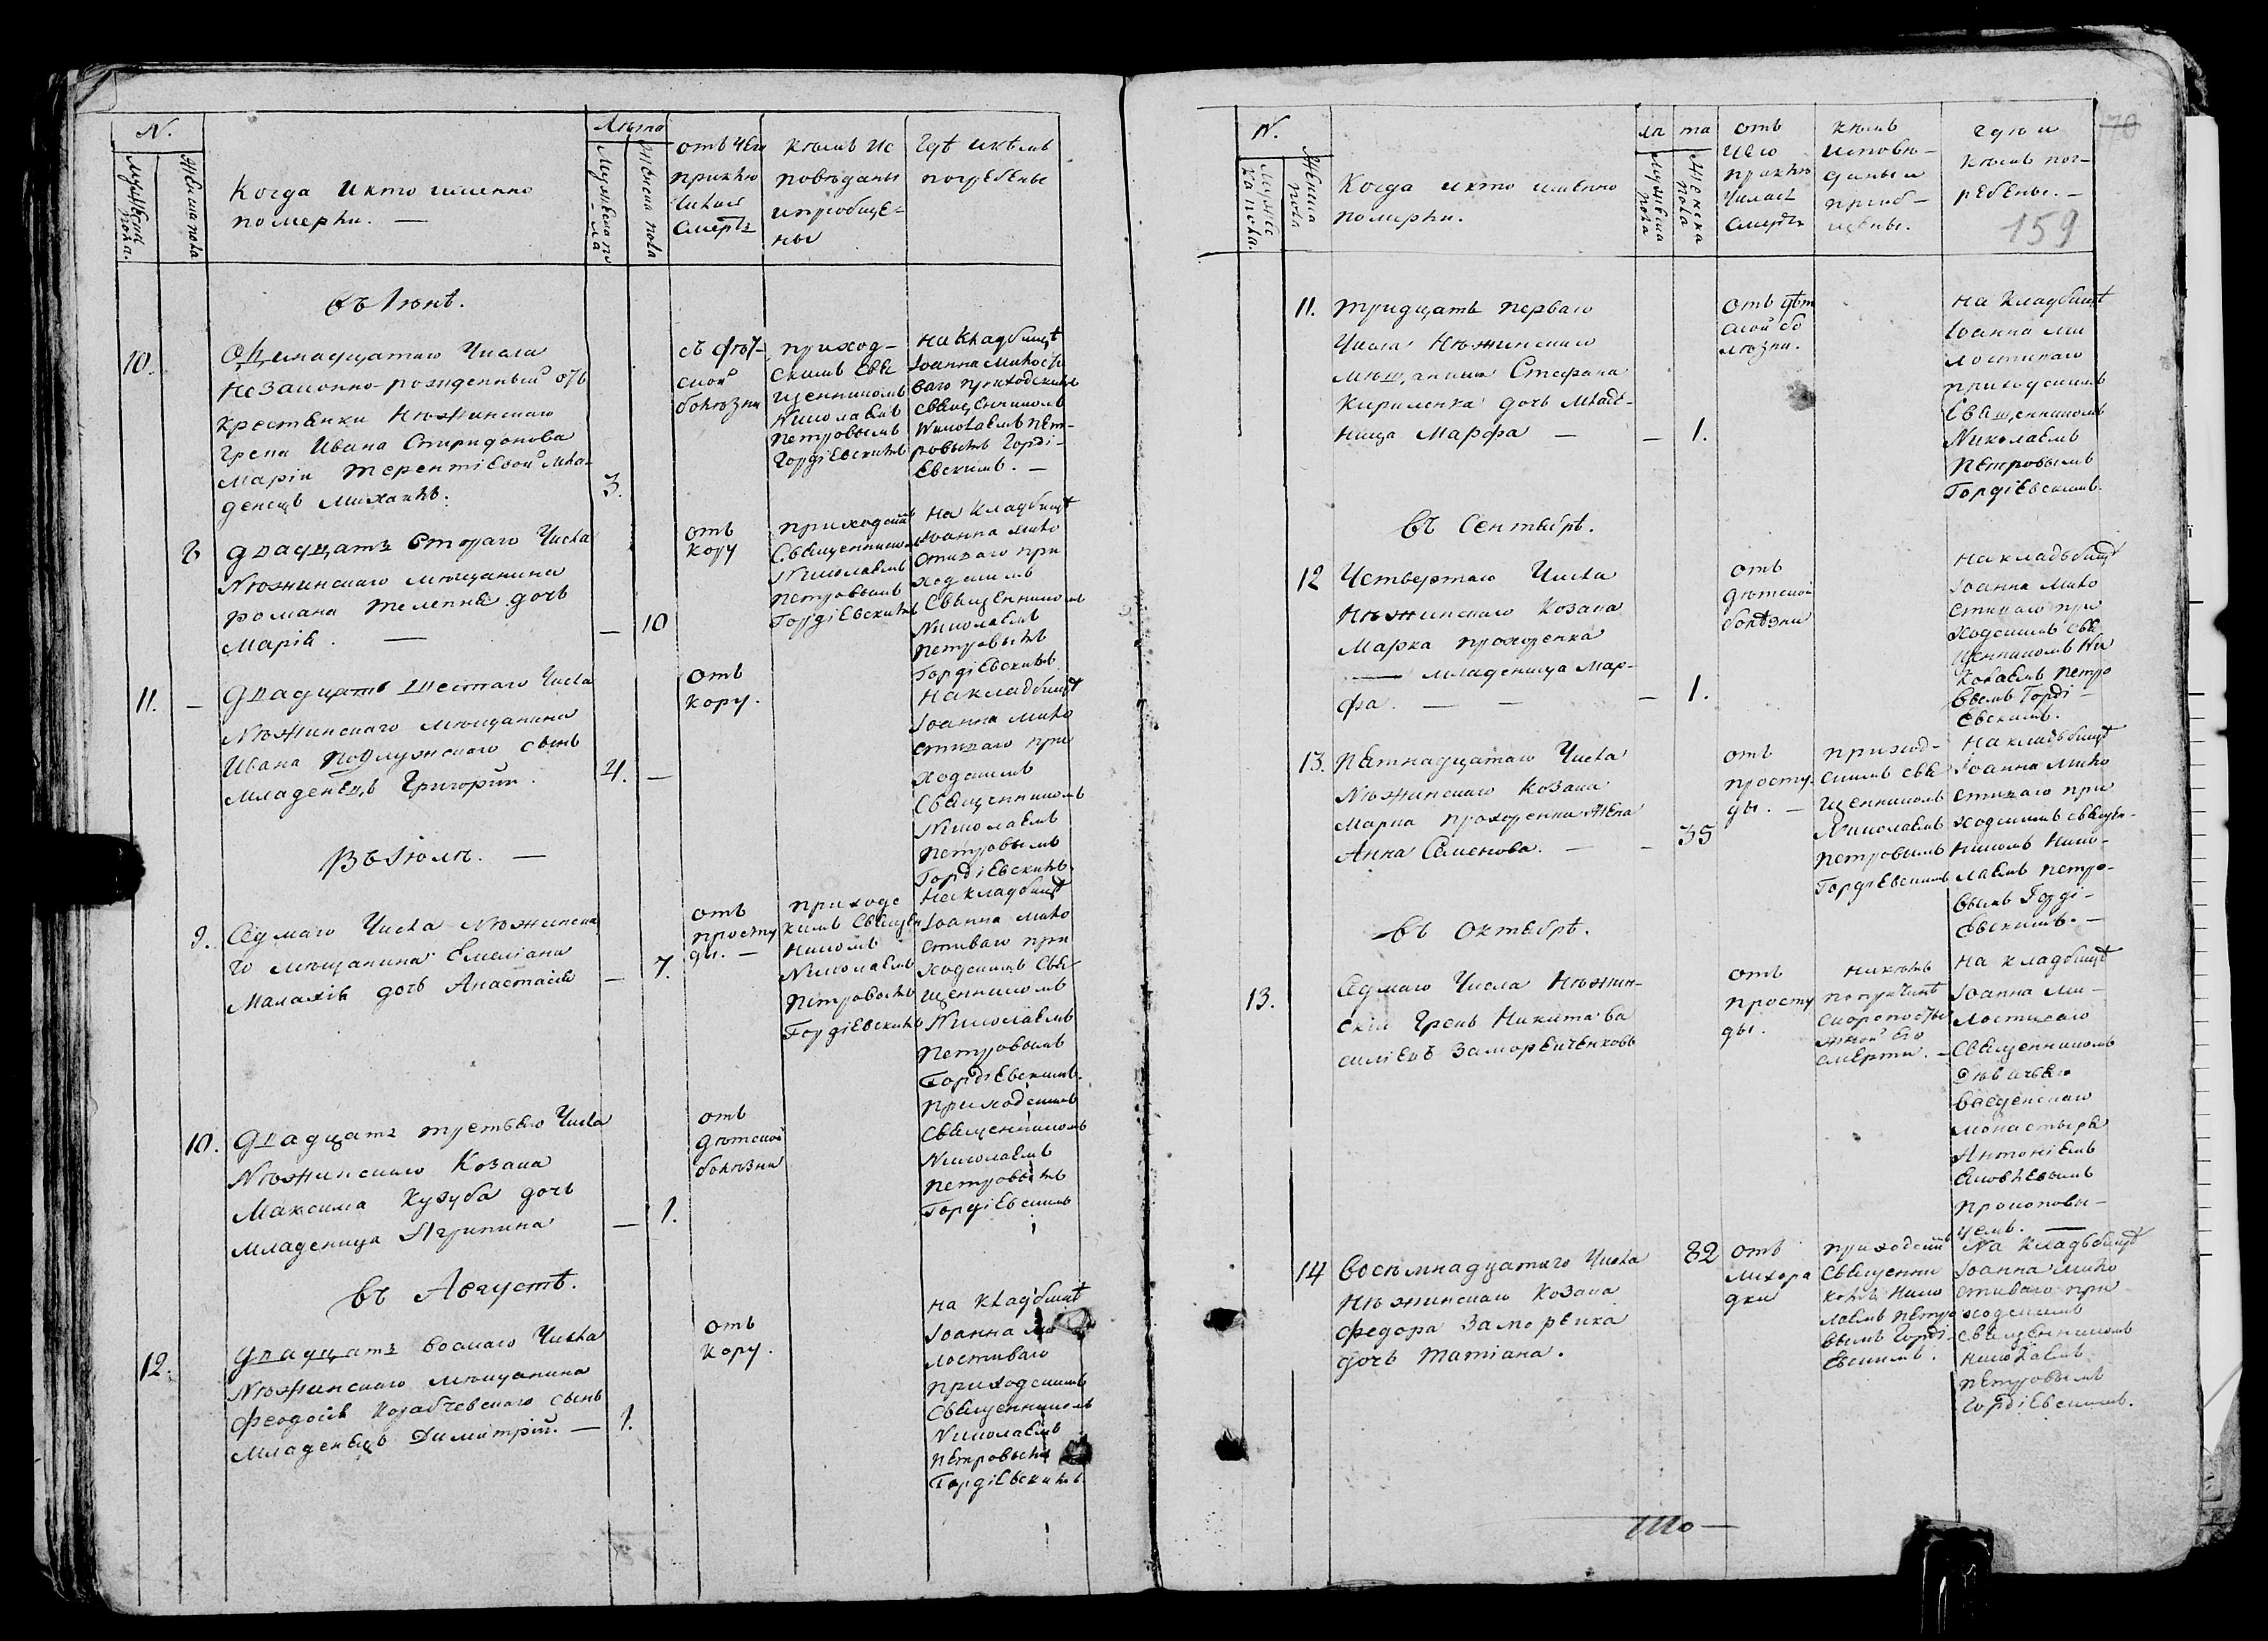 N.
Мужеска пола.
Женска пола
Когда и кто именно
померли. —
Лѣта
Мужеска пола
Женска пола
отъ чего
приклю
чилась
смерть
кѣмъ ис
повѣданы
и пріобще-
ны
Гдѣ и кѣмъ
погребены
въ Іюнѣ.
10.
числа
Незаконно-рожденный отъ
крестьянки Нѣжинскаго
Грека Ивана Спиридонова
Маріи Терентіевой мла-
денецъ Михаилъ.
3.
болѣзни
приход-
скимъ свя
щенникомъ
Николаемъ
Петровымъ
Гордіевскимъ
на кладбищѣ
Іоанна Милости
ваго приходскимъ
священникомъ
Николаемъ Пет-
ровымъ Горді-
евскимъ. —
8
двадцать втораго числа
Нѣжинскаго мѣщанина
Романа дочь
Марія. —
— 10
отъ
кору
приходскимъ
священникомъ
Николаемъ
Петровымъ
Гордіевскимъ
на кладбищѣ
Іоанна Мило
стиваго при
ходскимъ
священникомъ
Николаемъ
Петровымъ
Гордіевскимъ
11. —
двадцать шестаго числа
Нѣжинскаго мѣщанина
Ивана Подлужскаго сынъ
младенецъ Григорій.
4. —
отъ
кору.
на кладбищѣ
Іоанна Мило
стиваго при
ходскимъ
священникомъ
Николаемъ
Петровымъ
Гордіевскимъ.
Въ Іюлѣ. —
9.
Седмаго числа Нѣжинска
го мѣщанина Емеліана
Малахія дочь Анастасія
— 7.
отъ
просту
ды. —
приходс
кимъ священ
никомъ
Николаемъ
Петровымъ
Гордіевскимъ
на кладбищѣ
Іоанна Мило
стиваго при
ходскимъ свя
щенникомъ
Николаемъ
Петровымъ
Гордіевскимъ.
10.
двадцать третьяго числа
Нѣжинскаго Козака
Максима Кузуба дочь
младеница Агрипина
— 1.
отъ
дѣтской
болѣзни
приходскимъ
священникомъ
Николаемъ
Петровымъ
Гордіевскимъ
въ Августѣ.
12.
двадцать восмаго числа
Нѣжинскаго мѣщанина
Феодосія сынъ
младенецъ Димитрій. —
1.
отъ
кору.
на кладбищѣ
Іоанна Ми
лостиваго
приходскимъ
священникомъ
Николаемъ
Петровымъ
Гордіевскимъ.
70
159
N.
Мужес
ка пола.
Женска
пола
Когда и кто именно
померли.
лѣ та
Мужеска
пола
Женска
пола
отъ
чего
приклю
чилась
смерть
кѣмъ
исповѣ-
даны и
приоб-
щены.
гдѣ и
кѣмъ пог-
ребены. —
11.
тридцать перваго
числа Нѣжинскаго
мѣщанина Стефана
Кириленка дочь младе-
ница Марфа —
— 1.
отъ дѣт
ской бо
лѣзни.
на кладбищѣ
Іоанна Ми
лостиваго
приходскимъ
священникомъ
Николаемъ
Петровымъ
Гордіевскимъ.
въ Сентябрѣ.
12
Четвертаго числа
Нѣжинскаго Козака
Марка Прохоренка
— младеница Мар-
фа. — —
— 1.
отъ
дѣтской
болѣзни
на кладьбищѣ
Іоанна Мило
стиваго при
ходскимъ свя
щенникомъ Ни
колаемъ Петро
вымъ Горді-
евскимъ.
13.
Пятнадцатаго числа
Нѣжинскаго Козака
Марка Прохоренка жена
Анна Семенова. —
— 35
отъ
просту
ды. —
приход-
скимъ свя
щенникомъ
Николаемъ
Петровымъ
Гордіевскимъ
на кладьбищѣ
Іоанна Мило
стиваго при
ходскимъ священ-
никомъ Нико-
лаемъ Петро-
вымъ Горді-
евскимъ. —
въ Октябрѣ.
13.
Седмаго числа Нѣжин-
скій Грекъ Никита Ва
силіевъ
отъ
просту
ды.
никѣмъ
по причинѣ
скоропости
жной его
смерти. —
на кладбищѣ
Іоанна Ми-
лостиваго
священникомъ
Дѣвичьяго
введенскаго
монастыря
Антоніемъ
Яковлевымъ
Прокопови-
чемъ. —
14
Восемнадцатаго числа
Нѣжинскаго Козака
Федора
дочь Татіана.
82
отъ
лихора
дки
приходскимъ
священни
комъ Нико
лаемъ Петро
вымъ Горді-
евскимъ.
На кладьбищѣ
Іоанна Мило
стиваго при
ходскимъ
священникомъ
Николаемъ
Петровымъ
Гордіевскимъ.